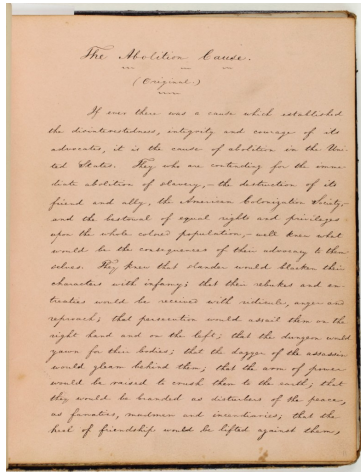 The Abolition Cause.
(Original.)
If ever there was a cause which established
the disinterestedness, integrity and courage of its
advocates, it is the cause of abolition in the Uni-
ted States. They who are contending for the imme-
diate abolition of slavery,—the destruction of its
friend and ally, the American Colonization Society,—
and the bestowal of equal rights and privileges
upon the whole colored population,—well knew what
would be the consequences of their advocacy to them-
selves. They knew that slander would blacken their
characters with infamy; that their rebukes and en-
treaties would be received with ridicule, anger and
reproach; that persecution would assail them on the
right hand and on the left; that the dungeon would
yawn for their bodies; that the dagger of the assassin
would gleam behind them; that the arm of power
would be raised to crush them to the earth; that
they would be branded as disturbers of the peace,
as fanatics, madmen and incendiaries; that the
heel of friendship would be lifted against them,